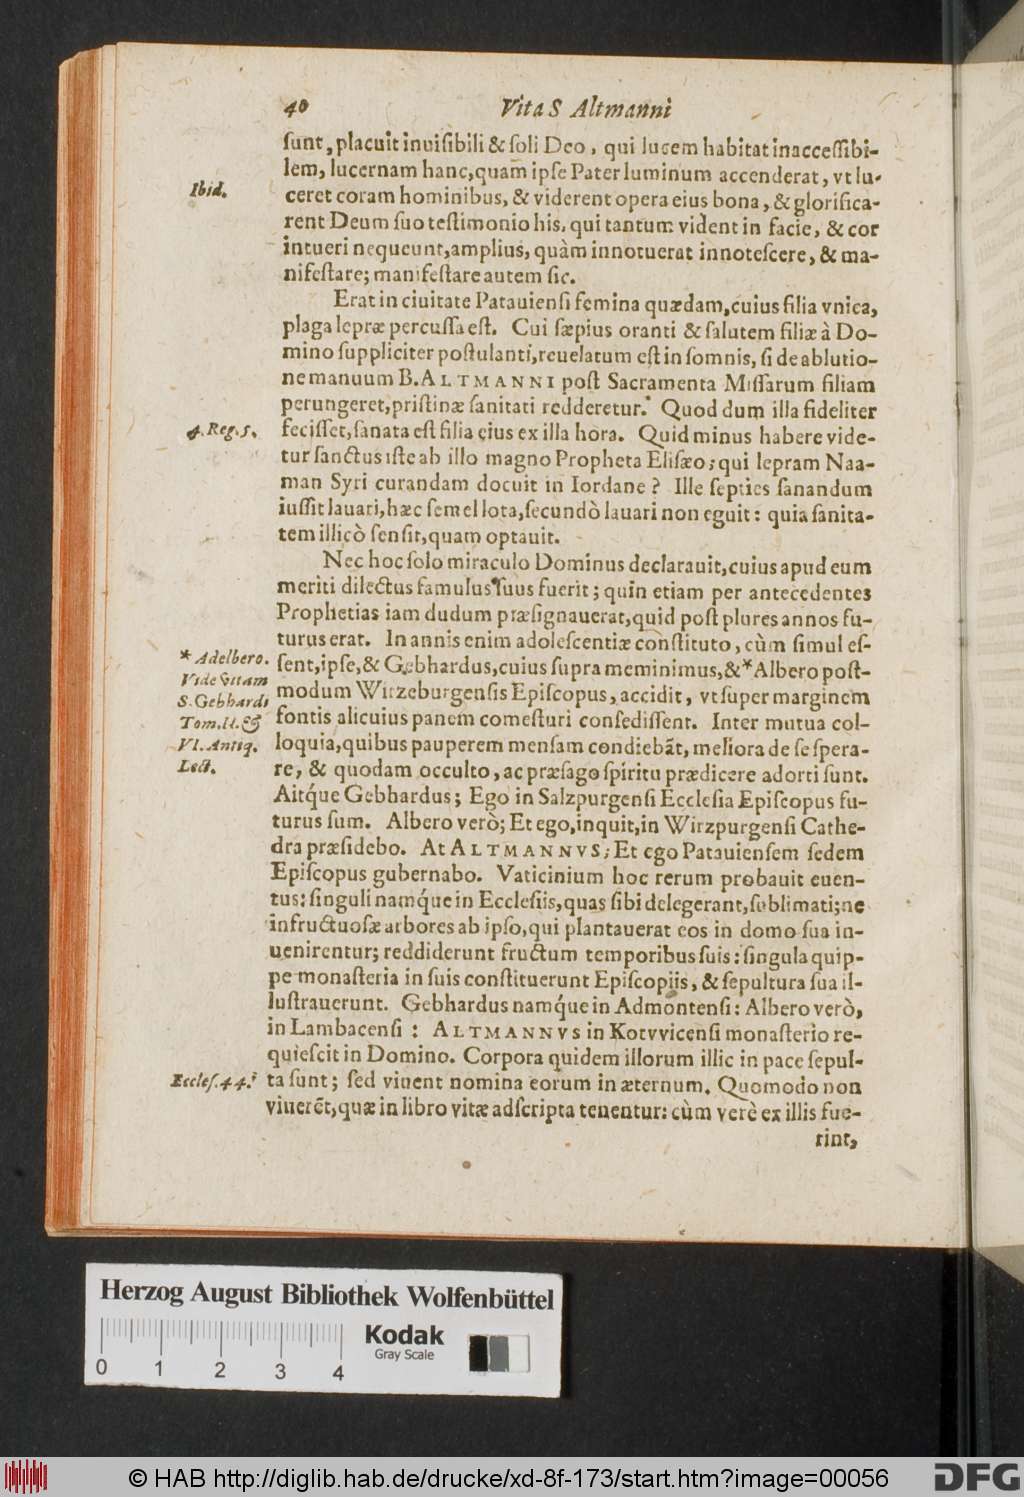 40 Vita S Altmanni
ſunt, placuit inuiſibili & ſoli Deo, qui lucem habitat inacceſſibi-
lem, lucernam hanc, quam ipſe Pater luminum accenderat, vt lu-
Ibid.
ceret coram hominibus, & viderent opera eius bona, & glorifica-
rent Deum ſuo teſtimonio his, qui tantum vident in facie, & cor
intueri nequeunt, amplius, quàm innotuerat innoteſcere, & ma-
nifeſtare; manifeſtare autem ſic.
Erat in ciuitate Patauienſi femina quædam, cuius filia vnica,
plaga lepræ percuſſa eſt. Cui ſæpius oranti & ſalutem filiæ à Do-
mino ſuppliciter poſtulanti, reuelatum eſt in ſomnis, ſi de ablutio-
ne manuum B. ALTMANNI poſt Sacramenta Miſſarum filiam
perungeret, priſtinæ ſanitati redderetur. Quod dum illa fideliter
4. Reg. 5.
feciſſet, ſanata eſt filia eius ex illa hora. Quid minus habere vide-
tur ſanctus iſte ab illo magno Propheta Eliſæo; qui lepram Naa-
man Syri curandam docuit in Iordane? Ille ſepties ſanandum
iuſſit lauari, hæc ſemel lota, ſecundò lauari non eguit: quia ſanita-
tem illicò ſenſit, quam optauit.
Nec hoc ſolo miraculo Dominus declarauit, cuius apud eum
meriti dilectus famulus ſuus fuerit; quin etiam per antecedentes
Prophetias iam dudum præſignauerat, quid poſt plures annos fu-
turus erat. In annis enim adoleſcentiæ conſtituto, cùm ſimul eſ-
* Adelbero.
Vide vitam
S. Gebhardi
Tom. II. &
VI. Antiq.
Lect.
ſent, ipſe, & Gebhardus, cuius ſupra meminimus, & * Albero poſt-
modum Wirzeburgenſis Epiſcopus, accidit, vt ſuper marginem
fontis alicuius panem comeſturi conſediſſent. Inter mutua col-
loquia, quibus pauperem menſam condiebãt, meliora de ſe ſpera-
re, & quodam occulto, ac præſago ſpiritu prædicere adorti ſunt.
Aitq́ue Gebhardus; Ego in Salzpurgenſi Eccleſia Epiſcopus fu-
turus ſum. Albero verò; Et ego, inquit, in Wirzpurgenſi Cathe-
dra præſidebo. At ALTMANNVS; Et ego Patauienſem ſedem
Epiſcopus gubernabo. Vaticinium hoc rerum probauit euen-
tus: ſinguli namq́ue in Eccleſiis, quas ſibi delegerant, ſublimati; ne
infructuoſæ arbores ab ipſo, qui plantauerat eos in domo ſua in-
uenirentur; reddiderunt fructum temporibus ſuis: ſingula quip-
pe monaſteria in ſuis conſtituerunt Epiſcopiis, & ſepultura ſua il-
luſtrauerunt. Gebhardus namq́ue in Admontenſi: Albero verò,
in Lambacenſi: ALTMANNVS in Kotvvicenſi monaſterio re-
quieſcit in Domino. Corpora quidem illorum illic in pace ſepul-
Eccleſ. 44.
ta ſunt; ſed viuent nomina eorum in æternum. Quomodo non
viuerẽt, quæ in libro vitæ adſcripta tenentur: cùm verè ex illis fue-
rint,
Herzog August Bibliothek Wolfenbüttel
Kodak
Gray Scale
0 1 2 3 4
© HAB http://diglib.hab.de/drucke/xd-8f-173/start.htm?image=00056
DFG